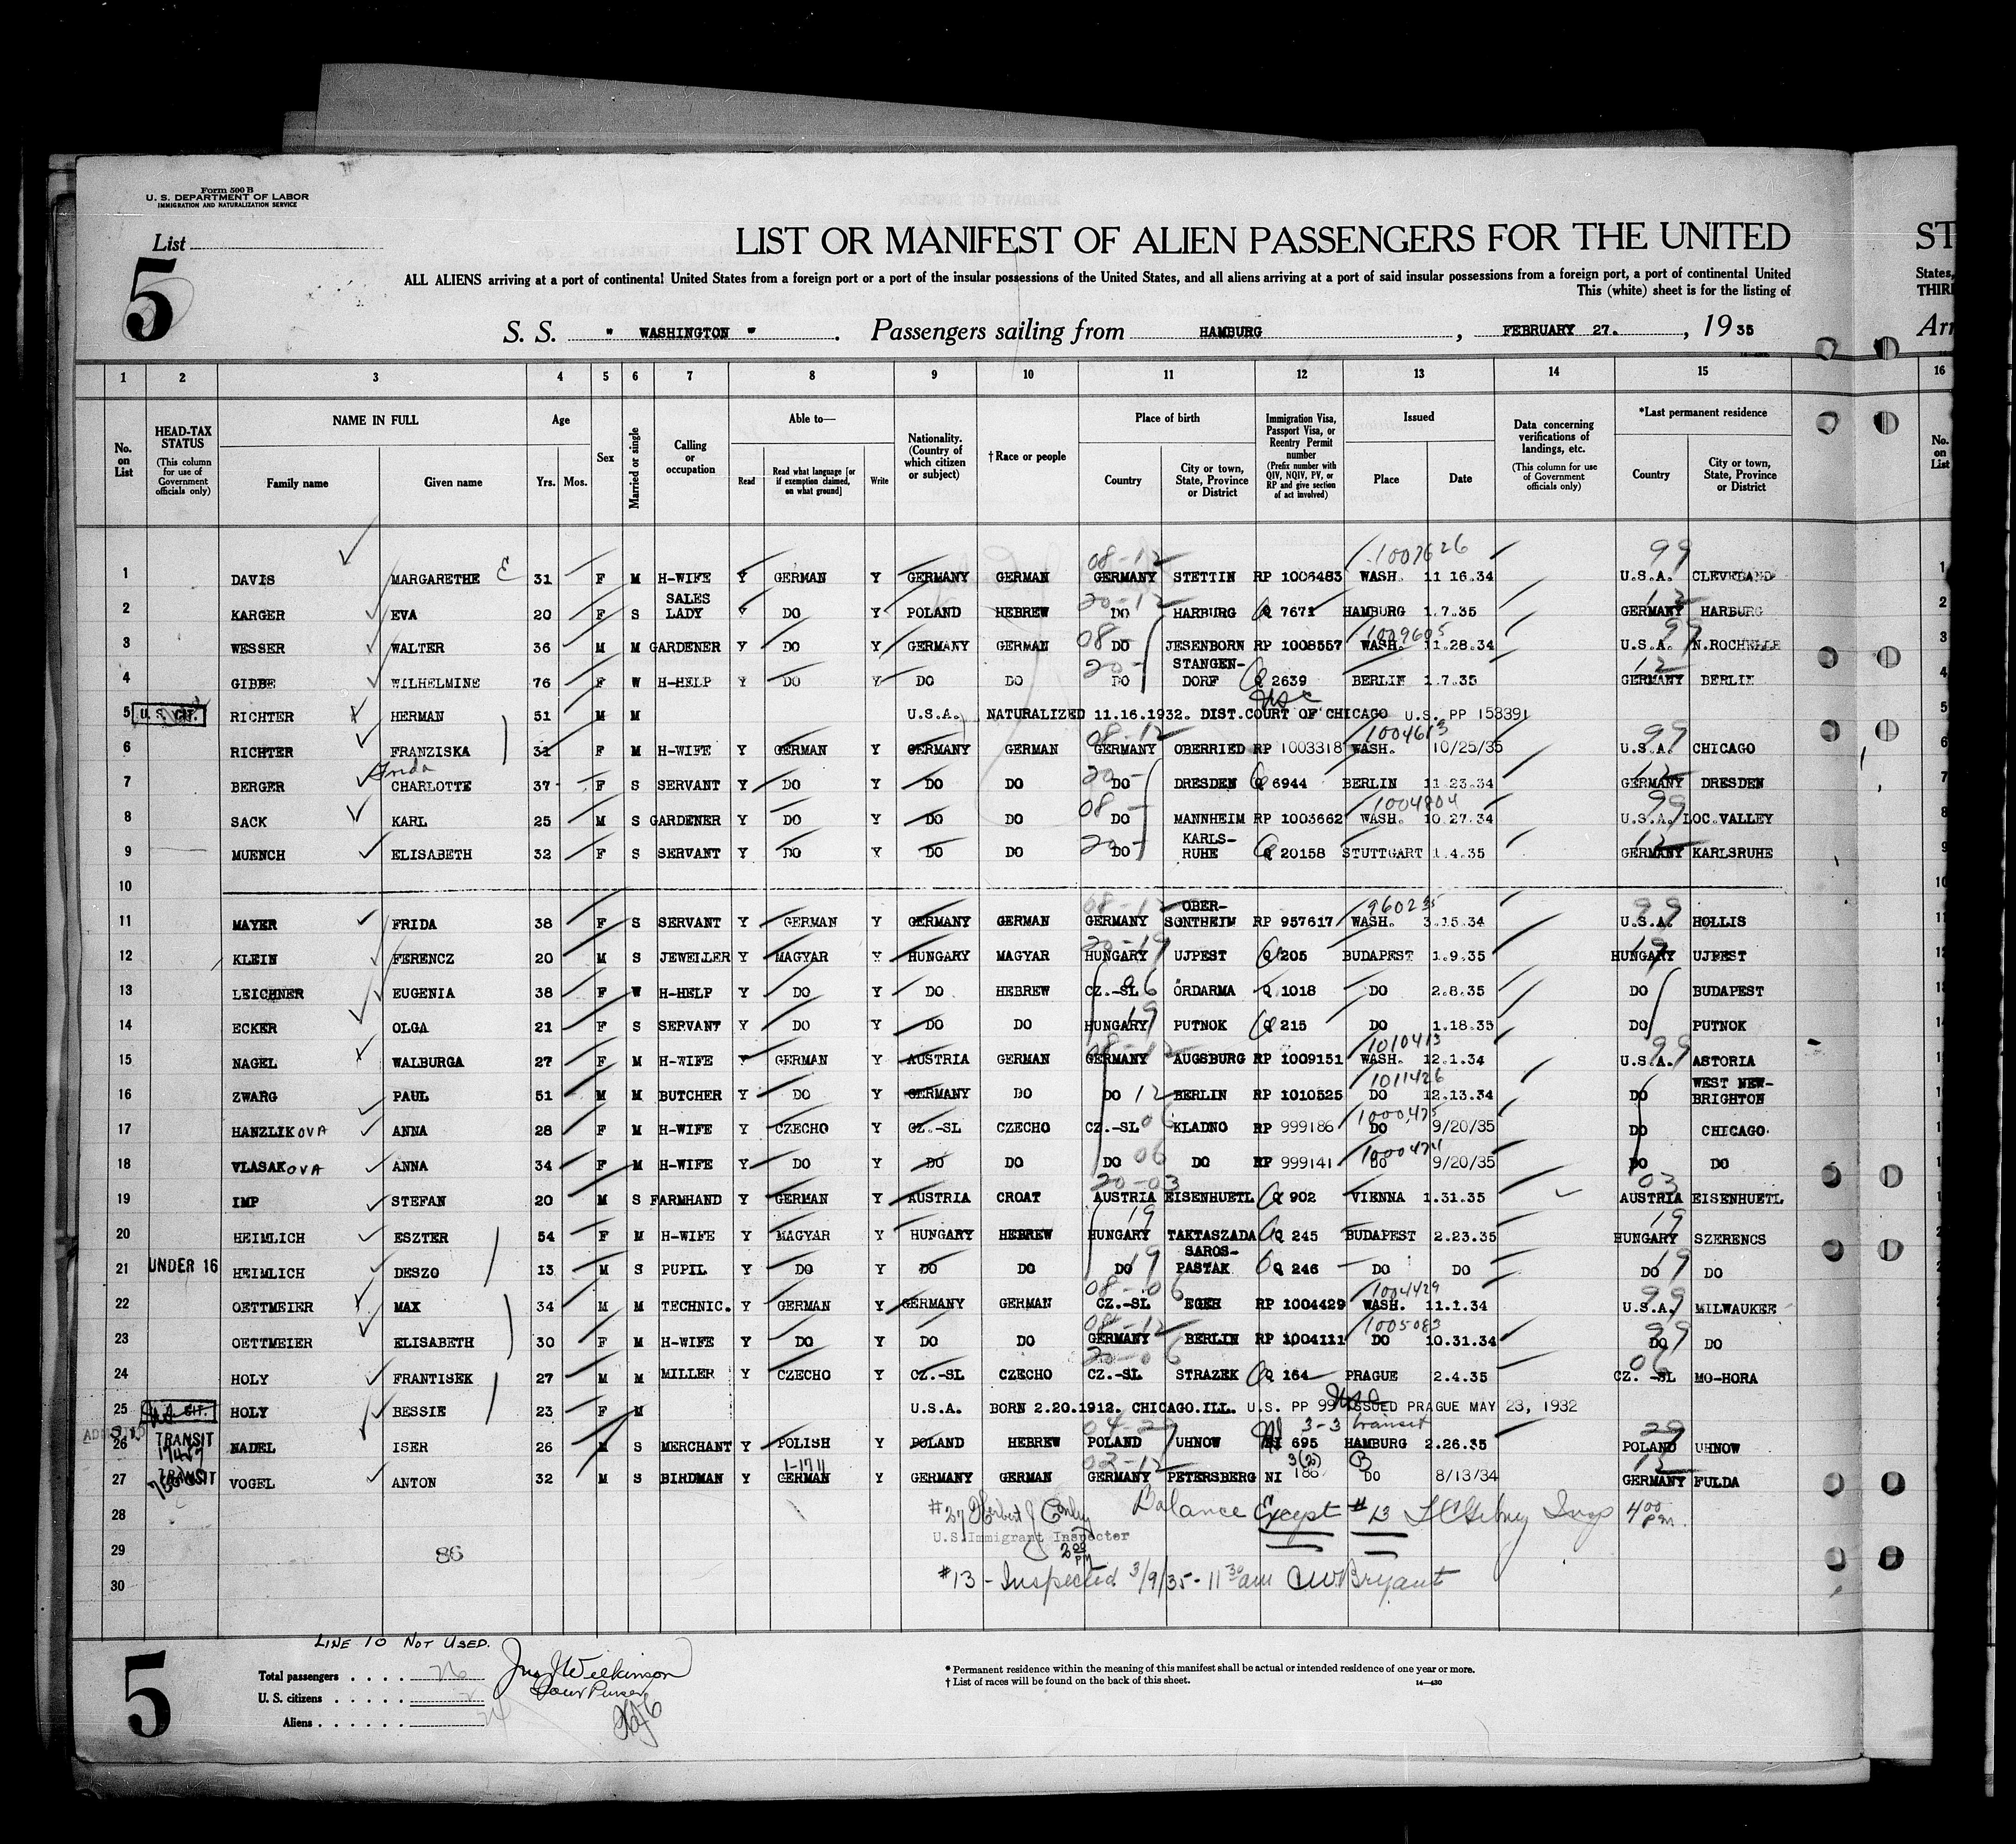 Form 500 B
U. S. DEPARTMENT OF LABOR
IMMIGRATION AND NATURALIZATION SERVICE
List
5
LIST OR MANIFEST OF ALIEN PASSENGERS FOR THE UNITED
ST
ALL ALIENS arriving at a port of continental United States from a foreign port or a port of the insular possessions of the United States, and all aliens arriving at a port of said insular possessions from a foreign port, a port of continental United
States,
This (white) sheet is for the listing of
THIR
S. S. " WASHINGTON ". Passengers sailing from HAMBURG, FEBRUARY 27., 1935
Arr
1 2 3 4 5 6 7 8 9 10 11 12 13 14 15 16
No. on List
HEAD-TAX STATUS (This column for use of Government officials only)
NAME IN FULL Family name Given name
Age Yrs. Mos.
Sex
Married or single
Calling or occupation
Able to— Read Read what language [or if exemption claimed, on what ground] Write
Nationality. (Country of which citizen or subject)
†Race or people
Place of birth Country City or town, State, Province or District
Immigration Visa, Passport Visa, or Reentry Permit number (Prefix number with QIV, NQIV, PV, or RP and give section of act involved)
Issued Place Date
Data concerning verifications of landings, etc. (This column for use of Government officials only)
*Last permanent residence Country City or town, State, Province or District
No. on List
08-12 1007626 99
1 DAVIS MARGARETHE E 31 F M H-WIFE Y GERMAN Y GERMANY GERMAN GERMANY STETTIN RP 1006483 WASH. 11 16.34 U.S.A. CLEVELAND
20-12 12
2 KARGER EVA 20 F S SALES LADY Y DO Y POLAND HEBREW DO HARBURG Q 7671 HAMBURG 1.7.35 GERMANY HARBURG
08 1009605 99
3 WESSER WALTER 36 M M GARDENER Y DO Y GERMANY GERMAN DO JESENBORN RP 1008557 WASH. 11.28.34 U.S.A. N.ROCHELLE
20 12
4 GIBBE WILHELMINE 76 F W H-HELP Y DO Y DO DO DO STANGEN-DORF Q 2639 BERLIN 1.7.35 GERMANY BERLIN
5 U.S. CIT. RICHTER HERMAN 51 M M U.S.A. NATURALIZED 11.16.1932. DIST.COURT OF CHICAGO U.S. PP 158391
08-12 1004613 99
6 RICHTER FRANZISKA 31 F M H-WIFE Y GERMAN Y GERMANY GERMAN GERMANY OBERRIED RP 1003318 WASH. 10/25/35 U.S.A. CHICAGO
Frida 20 12
7 BERGER CHARLOTTE 37 F S SERVANT Y DO Y DO DO DO DRESDEN Q 6944 BERLIN 11.23.34 GERMANY DRESDEN
08 1004804 99
8 SACK KARL 25 M S GARDENER Y DO Y DO DO DO MANNHEIM RP 1003662 WASH. 10.27.34 U.S.A. LOC.VALLEY
20 12
9 MUENCH ELISABETH 32 F S SERVANT Y DO Y DO DO DO KARLS-RUHE Q 20158 STUTTGART 1.4.35 GERMANY KARLSRUHE
10
08-12 960235 99
11 MAYER FRIDA 38 F S SERVANT Y GERMAN Y GERMANY GERMAN GERMANY OBER-SONTHEIM RP 957617 WASH. 3.15.34 U.S.A. HOLLIS
20-19 19
12 KLEIN FERENCZ 20 M S JEWELLER Y MAGYAR Y HUNGARY MAGYAR HUNGARY UJPEST Q 205 BUDAPEST 1.9.35 HUNGARY UJPEST
13 LEICHNER EUGENIA 38 F W H-HELP Y DO Y DO HEBREW CZ.-SL 06 ÖRDARMA Q 1018 DO 2.8.35 DO BUDAPEST
14 ECKER OLGA 21 F S SERVANT Y DO Y DO DO HUNGARY 19 PUTNOK Q 215 DO 1.18.35 DO PUTNOK
08-12 1010413 99
15 NAGEL WALBURGA 27 F M H-WIFE Y GERMAN Y AUSTRIA GERMAN GERMANY AUGSBURG RP 1009151 WASH. 12.1.34 U.S.A. ASTORIA
1011426
16 ZWARG PAUL 51 M M BUTCHER Y DO Y GERMANY DO DO 12 BERLIN RP 1010525 DO 12.13.34 DO WEST NEW-BRIGHTON
1000425
17 HANZLIKOVA ANNA 28 F M H-WIFE Y CZECHO Y CZ.-SL CZECHO CZ.-SL 06 KLADNO RP 999186 DO 9/20/35 DO CHICAGO
1000424
18 VLASAKOVA ANNA 34 F M H-WIFE Y DO Y DO DO DO 06 DO RP 999141 DO 9/20/35 DO DO
20-03 03
19 IMP STEFAN 20 M S FARMHAND Y GERMAN Y AUSTRIA CROAT AUSTRIA EISENHUETL Q 902 VIENNA 1.31.35 AUSTRIA EISENHUETL
19 19
20 HEIMLICH ESZTER 54 F M H-WIFE Y MAGYAR Y HUNGARY HEBREW HUNGARY TAKTASZADA Q 245 BUDAPEST 2.23.35 HUNGARY SZERENCS
21 UNDER 16 HEIMLICH DESZO 13 M S PUPIL Y DO Y DO DO DO 19 SAROS-PASTAK Q 246 DO DO DO 19 DO
08-06 1004429 99
22 OETTMEIER MAX 34 M M TECHNIC. Y GERMAN Y GERMANY GERMAN CZ.-SL EGER RP 1004429 WASH. 11.1.34 U.S.A. MILWAUKEE
08-12 1005083 99
23 OETTMEIER ELISABETH 30 F M H-WIFE Y DO Y DO DO GERMANY BERLIN RP 1004111 DO 10.31.34 DO DO
20-06 06
24 HOLY FRANTISEK 27 M M MILLER Y CZECHO Y CZ.-SL CZECHO CZ.-SL STRAZEK Q 164 PRAGUE 2.4.35 CZ.-SL MO-HORA
25 U.S. CIT. HOLY BESSIE 23 F M U.S.A. BORN 2.20.1912. CHICAGO.ILL. U.S. PP 99 ISSUED PRAGUE MAY 23, 1932
04-29 3-3 transit 29
26 TRANSIT NADEL ISER 26 M S MERCHANT Y POLISH Y POLAND HEBREW POLAND UHNOW NI 695 HAMBURG 2.26.35 POLAND UHNOW
1-1711 02-12 3(2) B 12
27 TRANSIT VOGEL ANTON 32 M S BIRDMAN Y GERMAN Y GERMANY GERMAN GERMANY PETERSBERG NI 186 DO 8/13/34 GERMANY FULDA
28 #27 Herbert J Conley Balance Except #13 Insp 4 00 pm.
U.S. Immigrant Inspector
29 86 2 00 PM
30 #13 - Inspected 3/9/35 - 11 30 am CW Bryant
LINE 10 NOT USED.
5
Total passengers 26
U. S. citizens 2
Aliens 24
Jno J Wilkinson
Tour Purser
* Permanent residence within the meaning of this manifest shall be actual or intended residence of one year or more.
† List of races will be found on the back of this sheet.
14—430